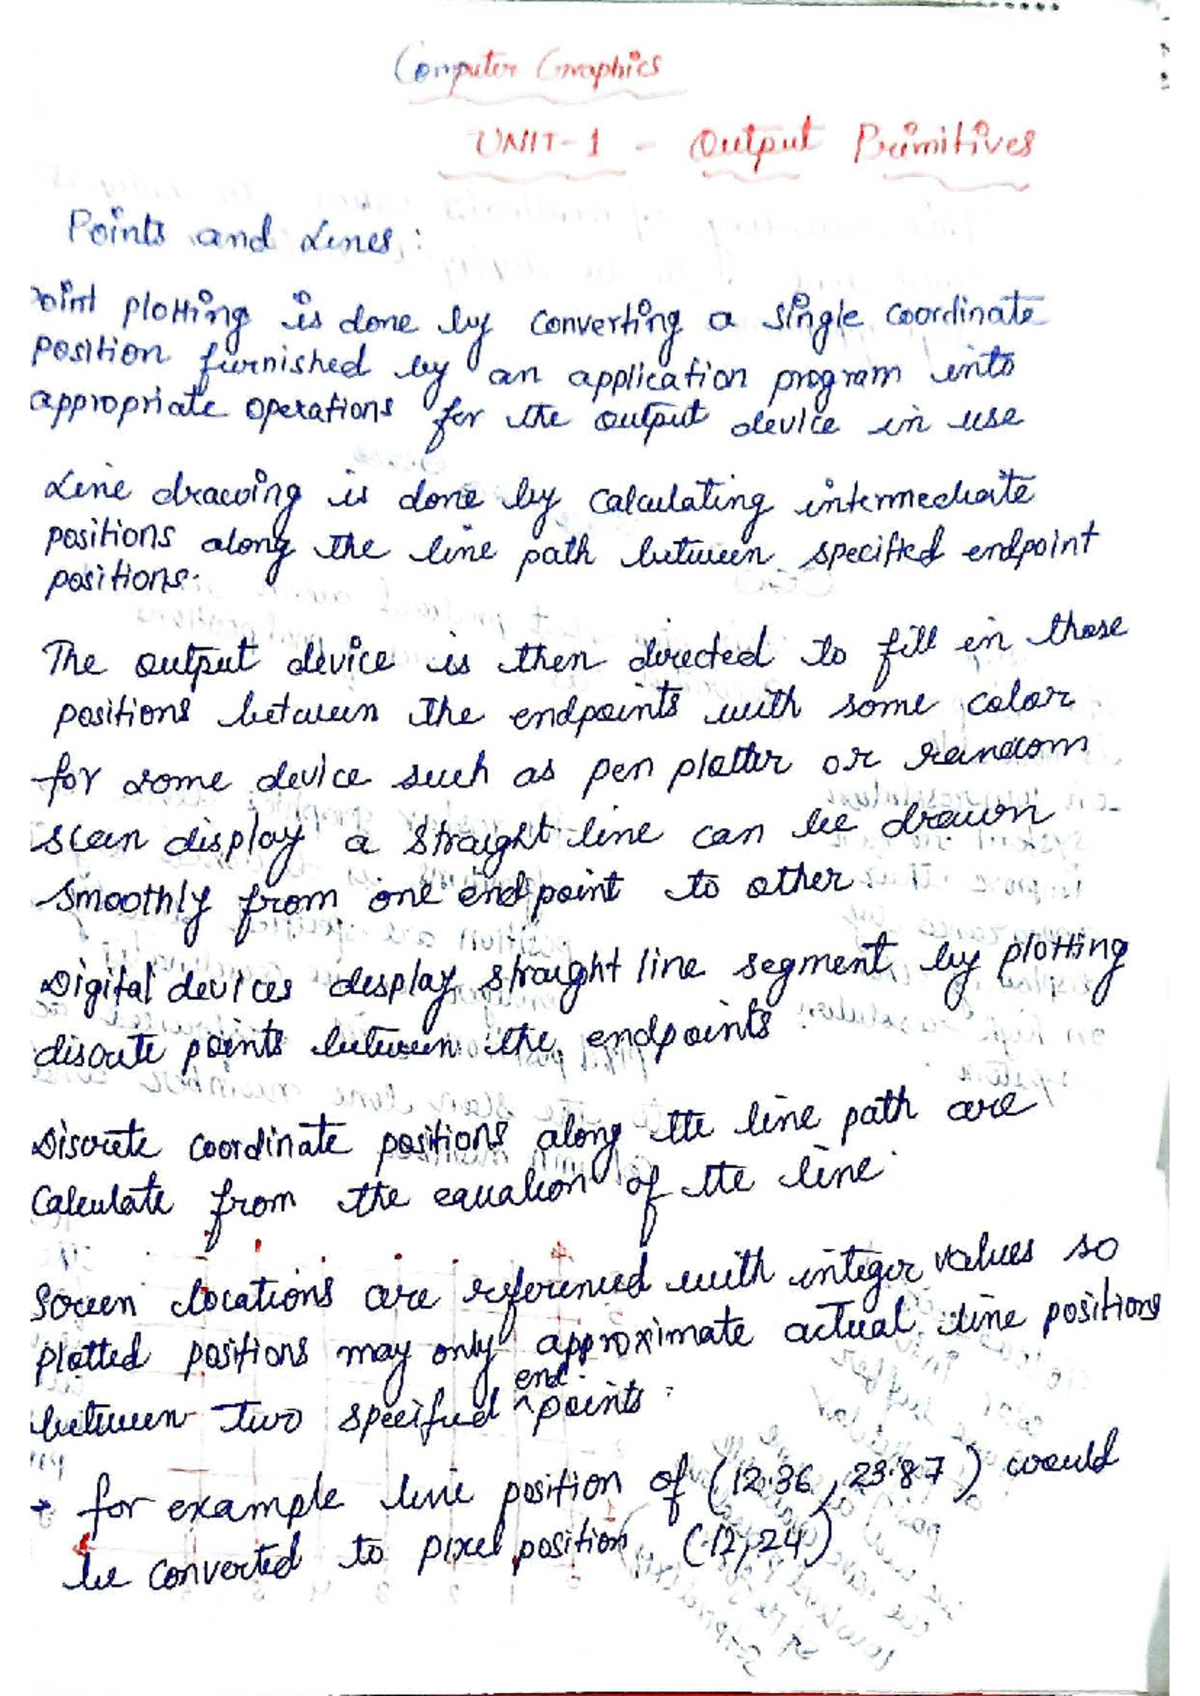 Computer Graphics
UNIT-1 - Output Primitives
Points and Lines:
oint plotting is done by converting a single coordinate
position furnished by an application program into
appropriate operations for the output device in use
Line drawing is done by calculating intermediate
positions along the line path between specified endpoint
positions.
The output device is then directed to fill in those
positions between the endpoints with some color
for some device such as pen plotter or random
scan display a straight line can be drawn
smoothly from one end point to other
Digital devices display straight line segment by plotting
discrete points between the endpoints
Discrete coordinate positions along the line path are
calculate from the equation of the line.
Screen locations are referenced with integer values so
plotted positions may only approximate actual line positions
between two specified ^ end points.
→ for example line position of (12.36, 23.87) would
be converted to pixel position (12, 24)